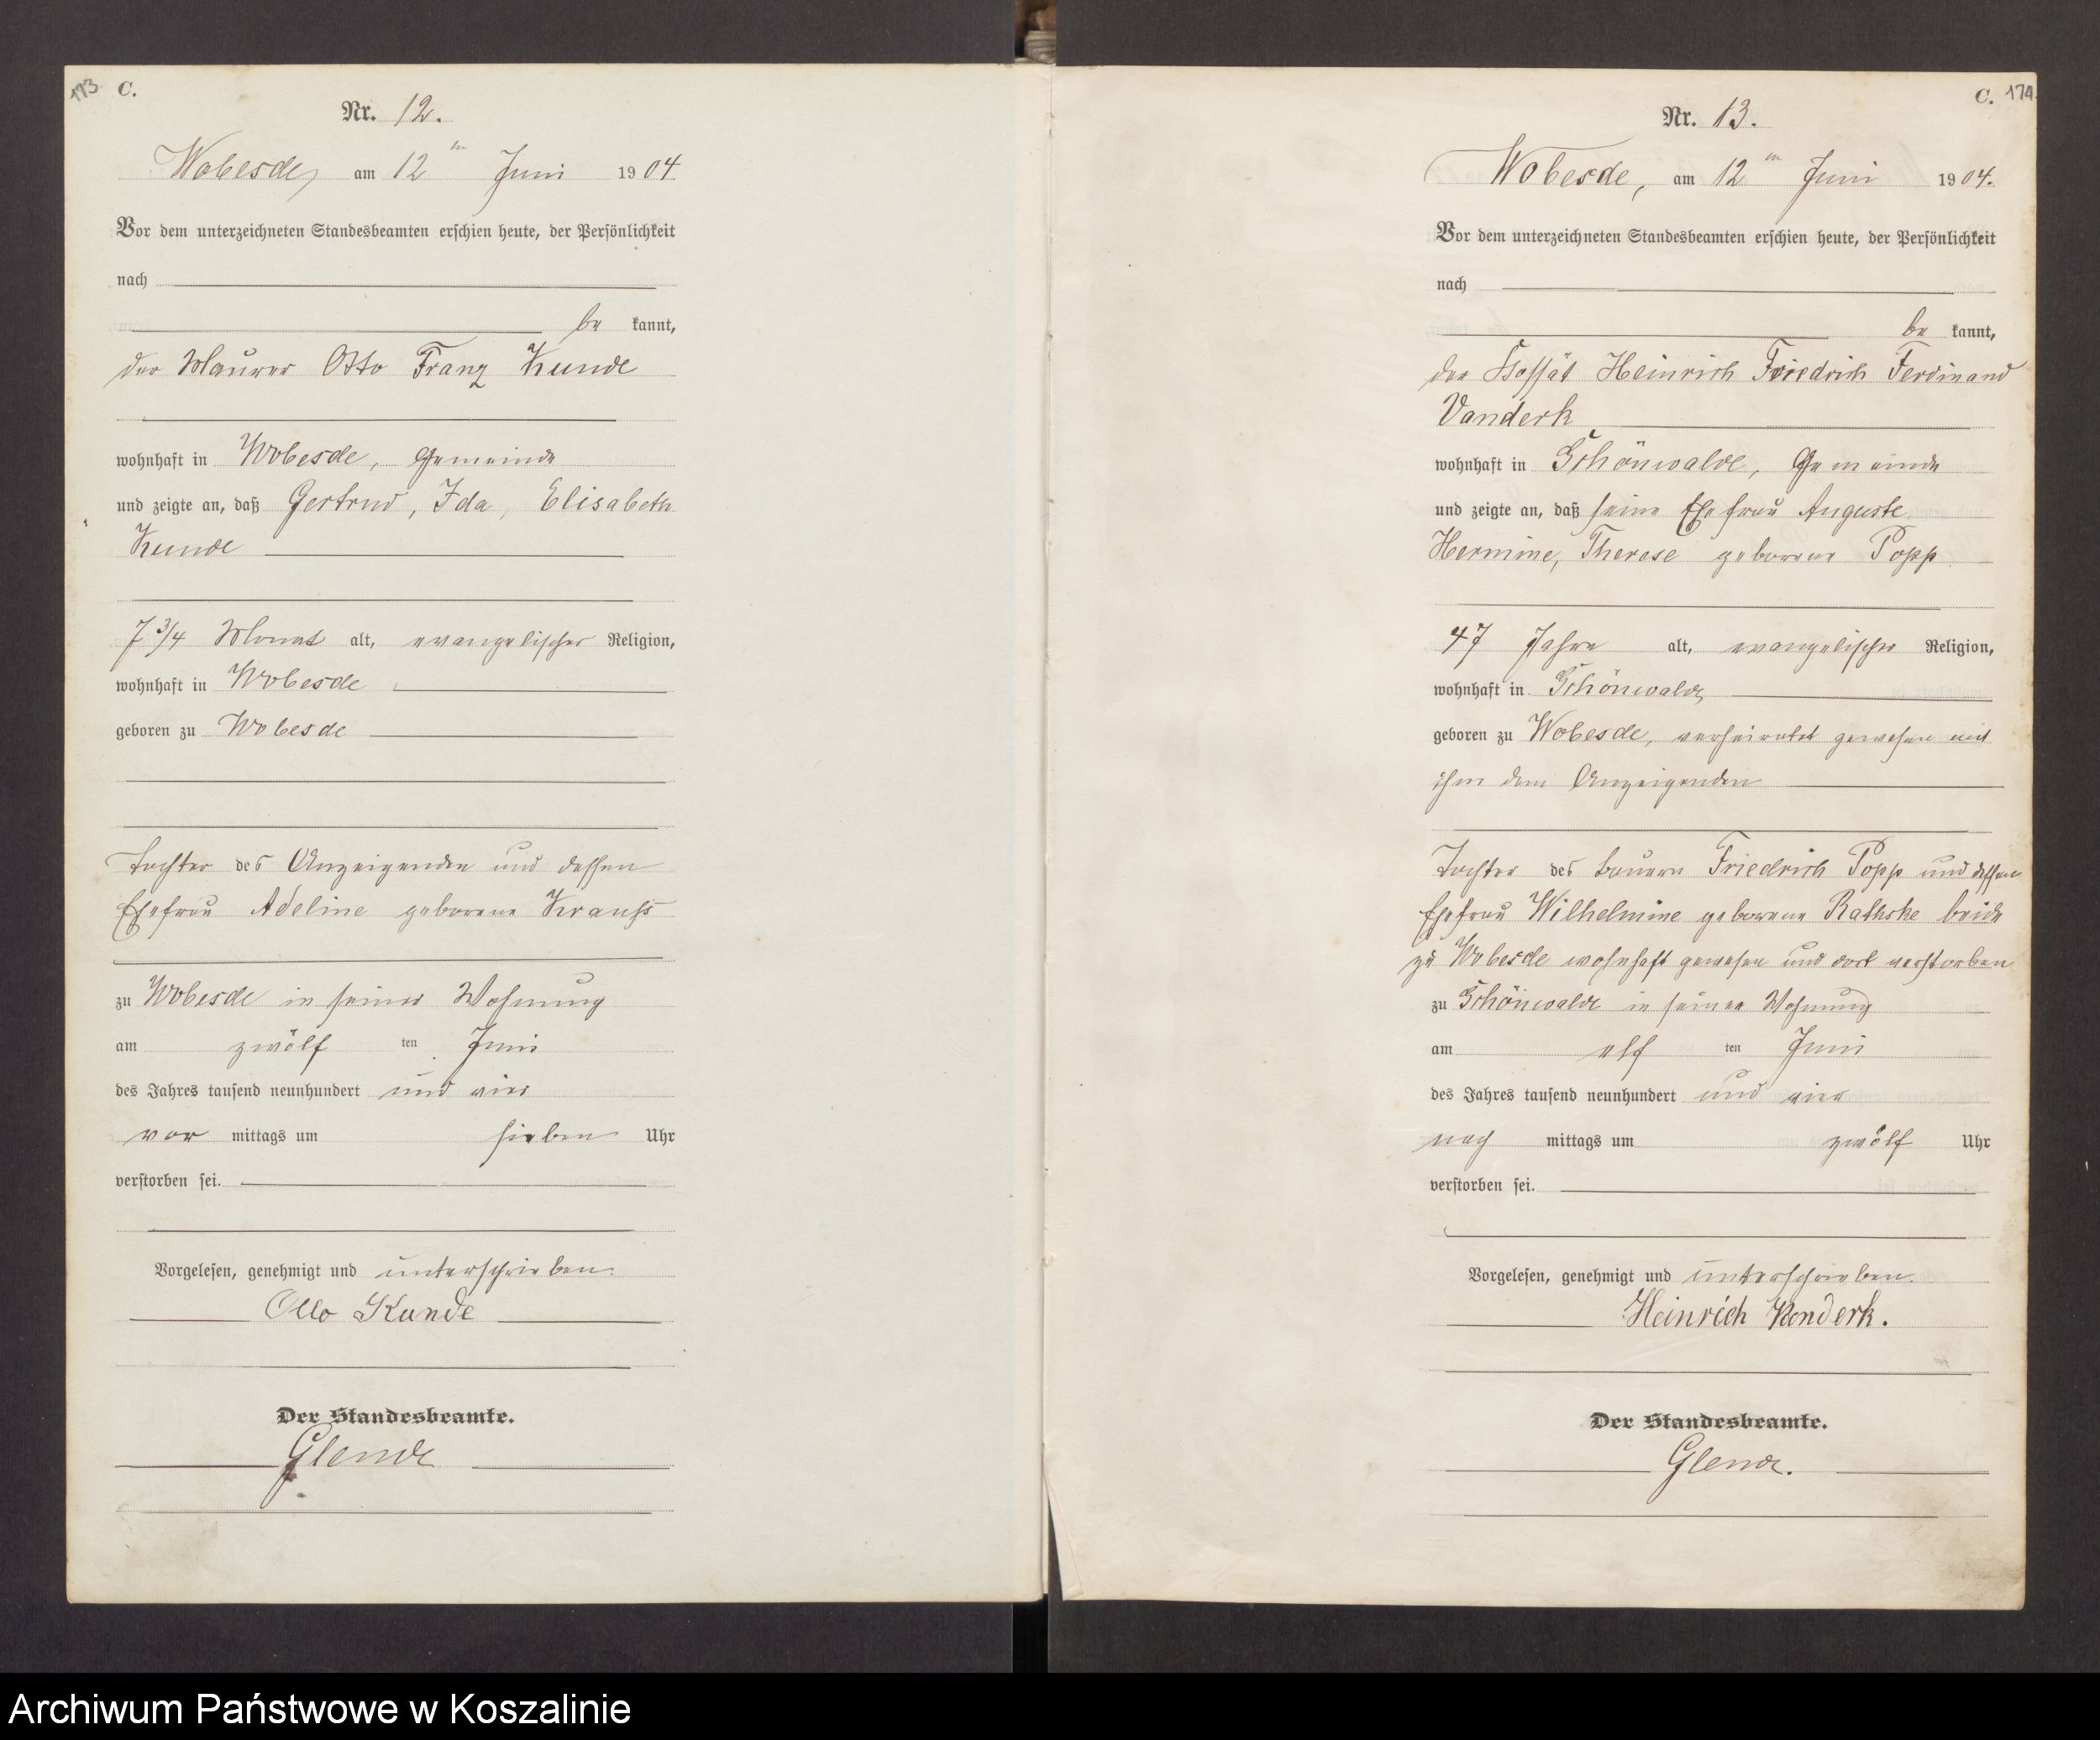 173 C.
Nr. 12.
Wobesde, am 12 ten Juni 1904
Vor dem unterzeichneten Standesbeamten erschien heute, der Persönlichkeit
nach
be kannt,
der Maurer Otto Franz Kunde
wohnhaft in Wobesde, Gemeinde
und zeigte an, daß Gertrud, Ida, Elisabeth
Kunde
7 3/4 Monat alt, evangelischer Religion,
wohnhaft in Wobesde
geboren zu Wobesde
Tochter des Anzeigenden und dessen
Ehefrau Adeline geborene Krauss
zu Wobesde in seiner Wohnung
am zwölf ten Juni
des Jahres tausend neunhundert und vier
vor mittags um sieben Uhr
verstorben sei.
Vorgelesen, genehmigt und unterschrieben.
Otto Kunde
Der Standesbeamte.
Glende
C. 174.
Nr. 13.
Wobesde, am 12 ten Juni 1904.
Vor dem unterzeichneten Standesbeamten erschien heute, der Persönlichkeit
nach
be kannt,
der Kossät Heinrich Friedrich Ferdinand
Vanderk
wohnhaft in Schönwalde, Gemeinde
und zeigte an, daß seine Ehefrau Auguste
Hermine, Therese geborene Popp
47 Jahre alt, evangelischer Religion,
wohnhaft in Schönwalde
geboren zu Wobesde, verheiratet gewesen mit
ihm dem Anzeigenden
Tochter des Bauern Friedrich Popp und dessen
Ehefrau Wilhelmine geborene Rathske beide
zu Wobesde wohnhaft gewesen und dort verstorben
zu Schönwalde in seiner Wohnung
am elf ten Juni
des Jahres tausend neunhundert und vier
nach mittags um zwölf Uhr
verstorben sei.
Vorgelesen, genehmigt und unterschrieben.
Heinrich Vanderk.
Der Standesbeamte.
Glende.
Archiwum Państwowe w Koszalinie